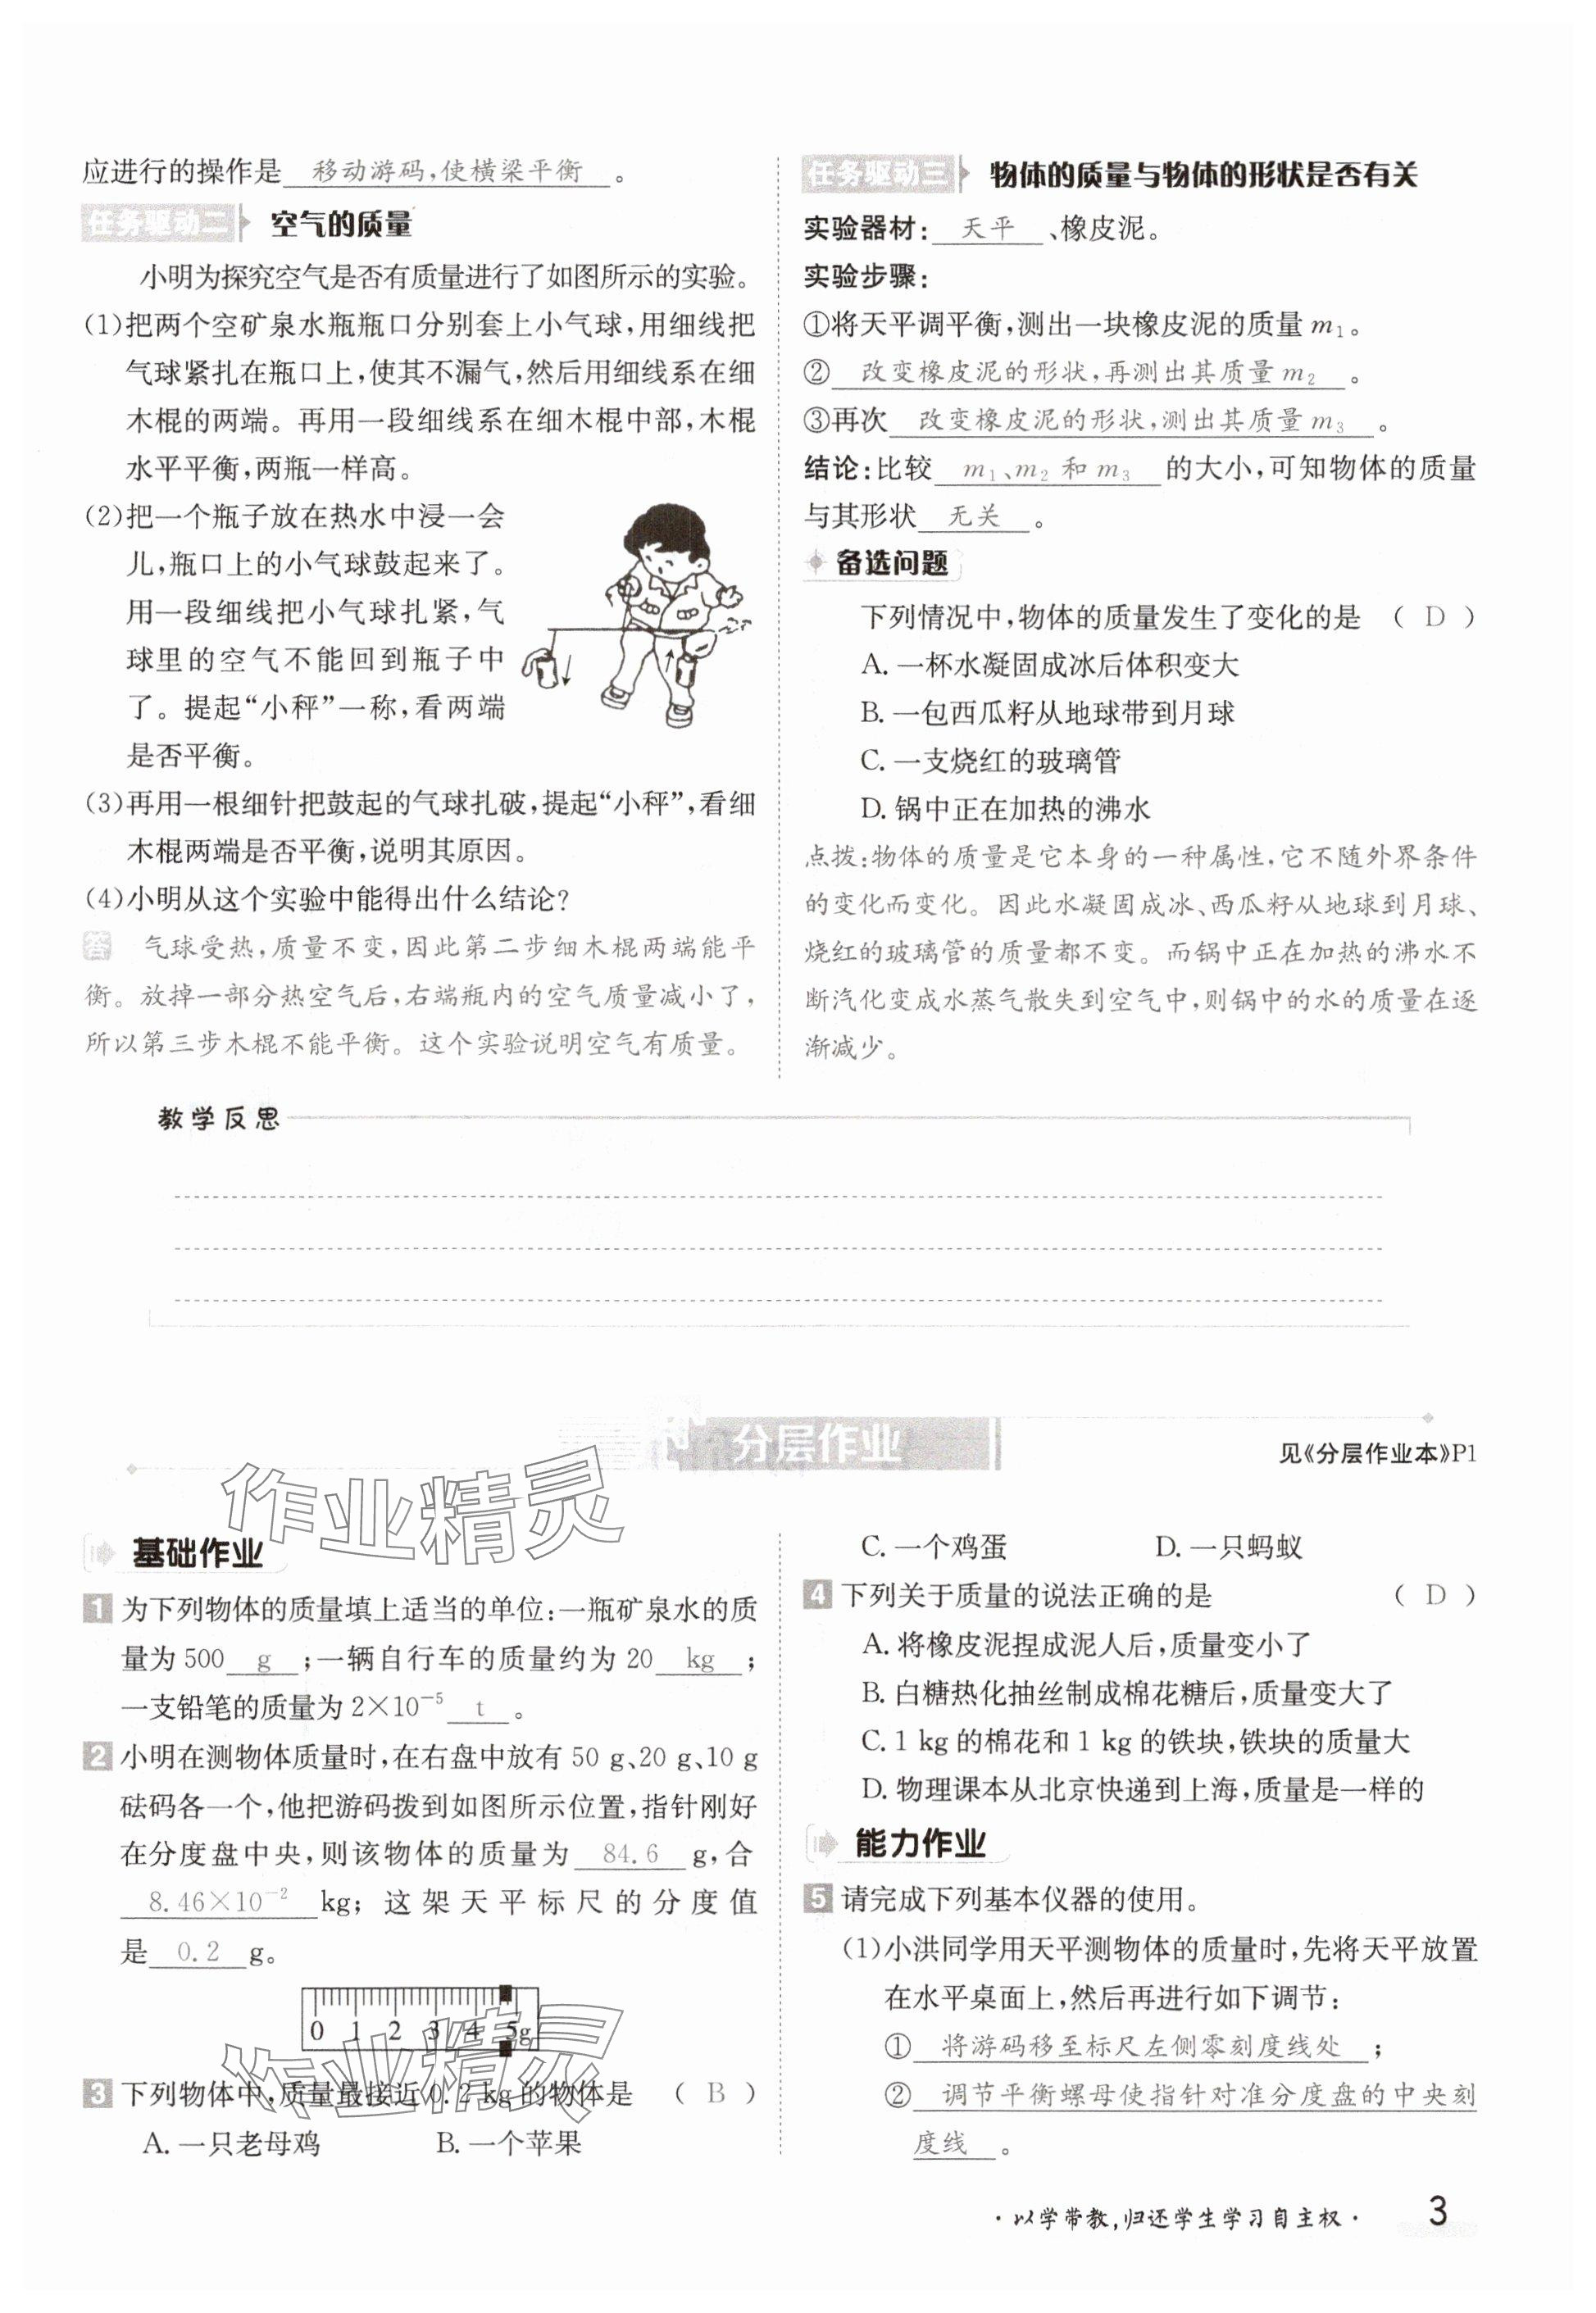 应进行的操作是 移动游码,使横梁平衡 。
任务驱动二 空气的质量
小明为探究空气是否有质量进行了如图所示的实验。
(1)把两个空矿泉水瓶瓶口分别套上小气球,用细线把
气球紧扎在瓶口上,使其不漏气,然后用细线系在细
木棍的两端。再用一段细线系在细木棍中部,木棍
水平平衡,两瓶一样高。
(2)把一个瓶子放在热水中浸一会
儿,瓶口上的小气球鼓起来了。
用一段细线把小气球扎紧,气
球里的空气不能回到瓶子中
了。提起“小秤”一称,看两端
是否平衡。
(3)再用一根细针把鼓起的气球扎破,提起“小秤”,看细
木棍两端是否平衡,说明其原因。
(4)小明从这个实验中能得出什么结论?
答 气球受热,质量不变,因此第二步细木棍两端能平
衡。放掉一部分热空气后,右端瓶内的空气质量减小了,
所以第三步木棍不能平衡。这个实验说明空气有质量。
任务驱动三 物体的质量与物体的形状是否有关
实验器材: 天平 、橡皮泥。
实验步骤:
①将天平调平衡,测出一块橡皮泥的质量 m₁。
② 改变橡皮泥的形状,再测出其质量 m₂ 。
③再次 改变橡皮泥的形状,测出其质量 m₃ 。
结论:比较 m₁、m₂ 和 m₃ 的大小,可知物体的质量
与其形状 无关 。
备选问题
下列情况中,物体的质量发生了变化的是 ( D )
A. 一杯水凝固成冰后体积变大
B. 一包西瓜籽从地球带到月球
C. 一支烧红的玻璃管
D. 锅中正在加热的沸水
点拨:物体的质量是它本身的一种属性,它不随外界条件
的变化而变化。因此水凝固成冰、西瓜籽从地球到月球、
烧红的玻璃管的质量都不变。而锅中正在加热的沸水不
断汽化变成水蒸气散失到空气中,则锅中的水的质量在逐
渐减少。
教学反思
分层作业
见《分层作业本》P1
作业精灵
基础作业
1 为下列物体的质量填上适当的单位:一瓶矿泉水的质
量为 500 g ;一辆自行车的质量约为 20 kg ;
一支铅笔的质量为 2×10⁻⁵ t 。
2 小明在测物体质量时,在右盘中放有 50 g、20 g、10 g
砝码各一个,他把游码拨到如图所示位置,指针刚好
在分度盘中央,则该物体的质量为 84.6 g,合
8.46×10⁻² kg; 这架天平标尺的分度值
是 0.2 g。
0 1 2 3 4 5g
作业精灵
3 下列物体中,质量最接近 0.2 kg 的物体是 ( B )
A. 一只老母鸡 B. 一个苹果
C. 一个鸡蛋 D. 一只蚂蚁
4 下列关于质量的说法正确的是 ( D )
A. 将橡皮泥捏成泥人后,质量变小了
B. 白糖热化抽丝制成棉花糖后,质量变大了
C. 1 kg 的棉花和 1 kg 的铁块,铁块的质量大
D. 物理课本从北京快递到上海,质量是一样的
能力作业
5 请完成下列基本仪器的使用。
(1)小洪同学用天平测物体的质量时,先将天平放置
在水平桌面上,然后再进行如下调节:
① 将游码移至标尺左侧零刻度线处 ;
② 调节平衡螺母使指针对准分度盘的中央刻
度线 。
·以学带教,归还学生学习自主权·
3